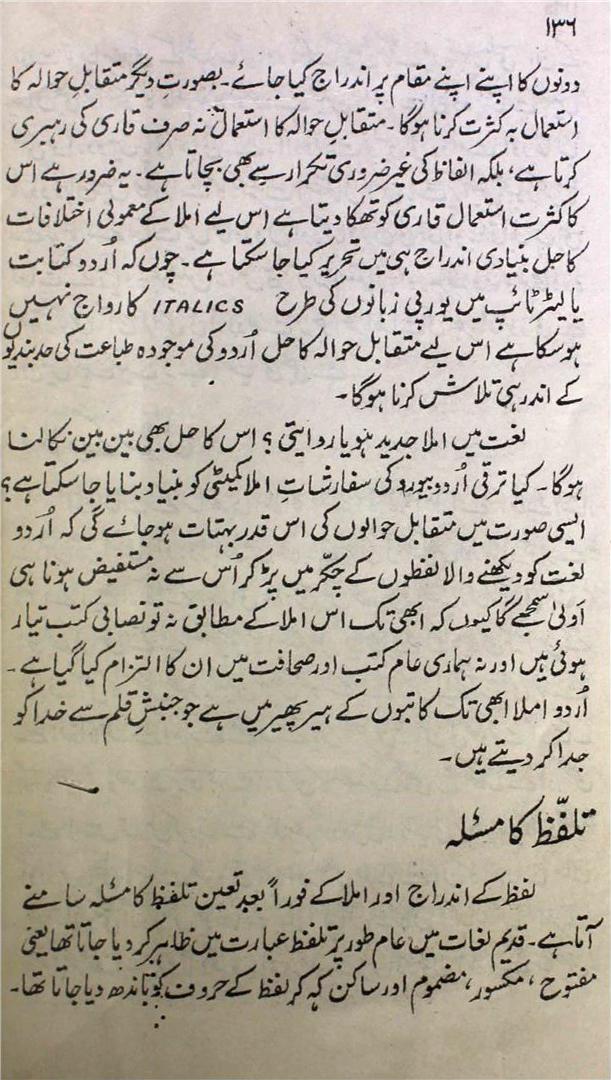 ۱۳۶
دونوں کا اپنے اپنے مقام پر اندراج کیا جائے۔ بصورتِ دیگر متقابل حوالہ کا
استعمال بہ کثرت کرنا ہوگا۔ متقابل حوالہ کا استعمال نہ صرف قاری کی رہبری
کرتا ہے، بلکہ الفاظ کی غیر ضروری تکرار سے بھی بچاتا ہے۔ یہ ضرور ہے اس
کا کثرت استعمال قاری کو تھکا دیتا ہے اس لیے املا کے معمولی اختلافات
کا حل بنیادی اندراج ہی میں تحریر کیا جاسکتا ہے۔ چوں کہ اُردو کتابت
یا لیٹر ٹائپ میں یورپی زبانوں کی طرح ITALICS کا رواج نہیں
ہوسکا ہے اس لیے متقابل حوالہ کا حل اُردو کی موجودہ طباعت کی حدبندیوں
کے اندر ہی تلاش کرنا ہوگا۔
لغت میں املا جدید ہو یا روایتی؟ اس کا حل بھی بین بین نکالنا
ہوگا۔ کیا ترقی اُردو بیورو کی سفارشاتِ املا کمیٹی کو بنیاد بنایا جاسکتا ہے؟
ایسی صورت میں متقابل حوالوں کی اس قدر بہتات ہوجائے گی کہ اُردو
لغت کو دیکھنے والا لفظوں کے چکّر میں پڑ کر اُس سے نہ مستفیض ہونا ہی
اَولیٰ سمجھے گا کیوں کہ ابھی تک اس املا کے مطابق نہ تو نصابی کتب تیار
ہوئی ہیں اور نہ ہماری عام کتب اور صحافت میں ان کا التزام کیا گیا ہے۔
اُردو املا ابھی تک کاتبوں کے ہیر پھیر میں ہے جو جنبشِ قلم سے خدا کو
جدا کر دیتے ہیں۔
تلفّظ کا مسئلہ
لفظ کے اندراج اور املا کے فوراً بعد تعین تلفظ کا مسئلہ سامنے
آتا ہے۔ قدیم لغات میں عام طور پر تلفظ عبارت میں ظاہر کر دیا جاتا تھا یعنی
مفتوح، مکسور، مضموم اور ساکن کہہ کر لفظ کے حروف کو باندھ دیا جاتا تھا۔